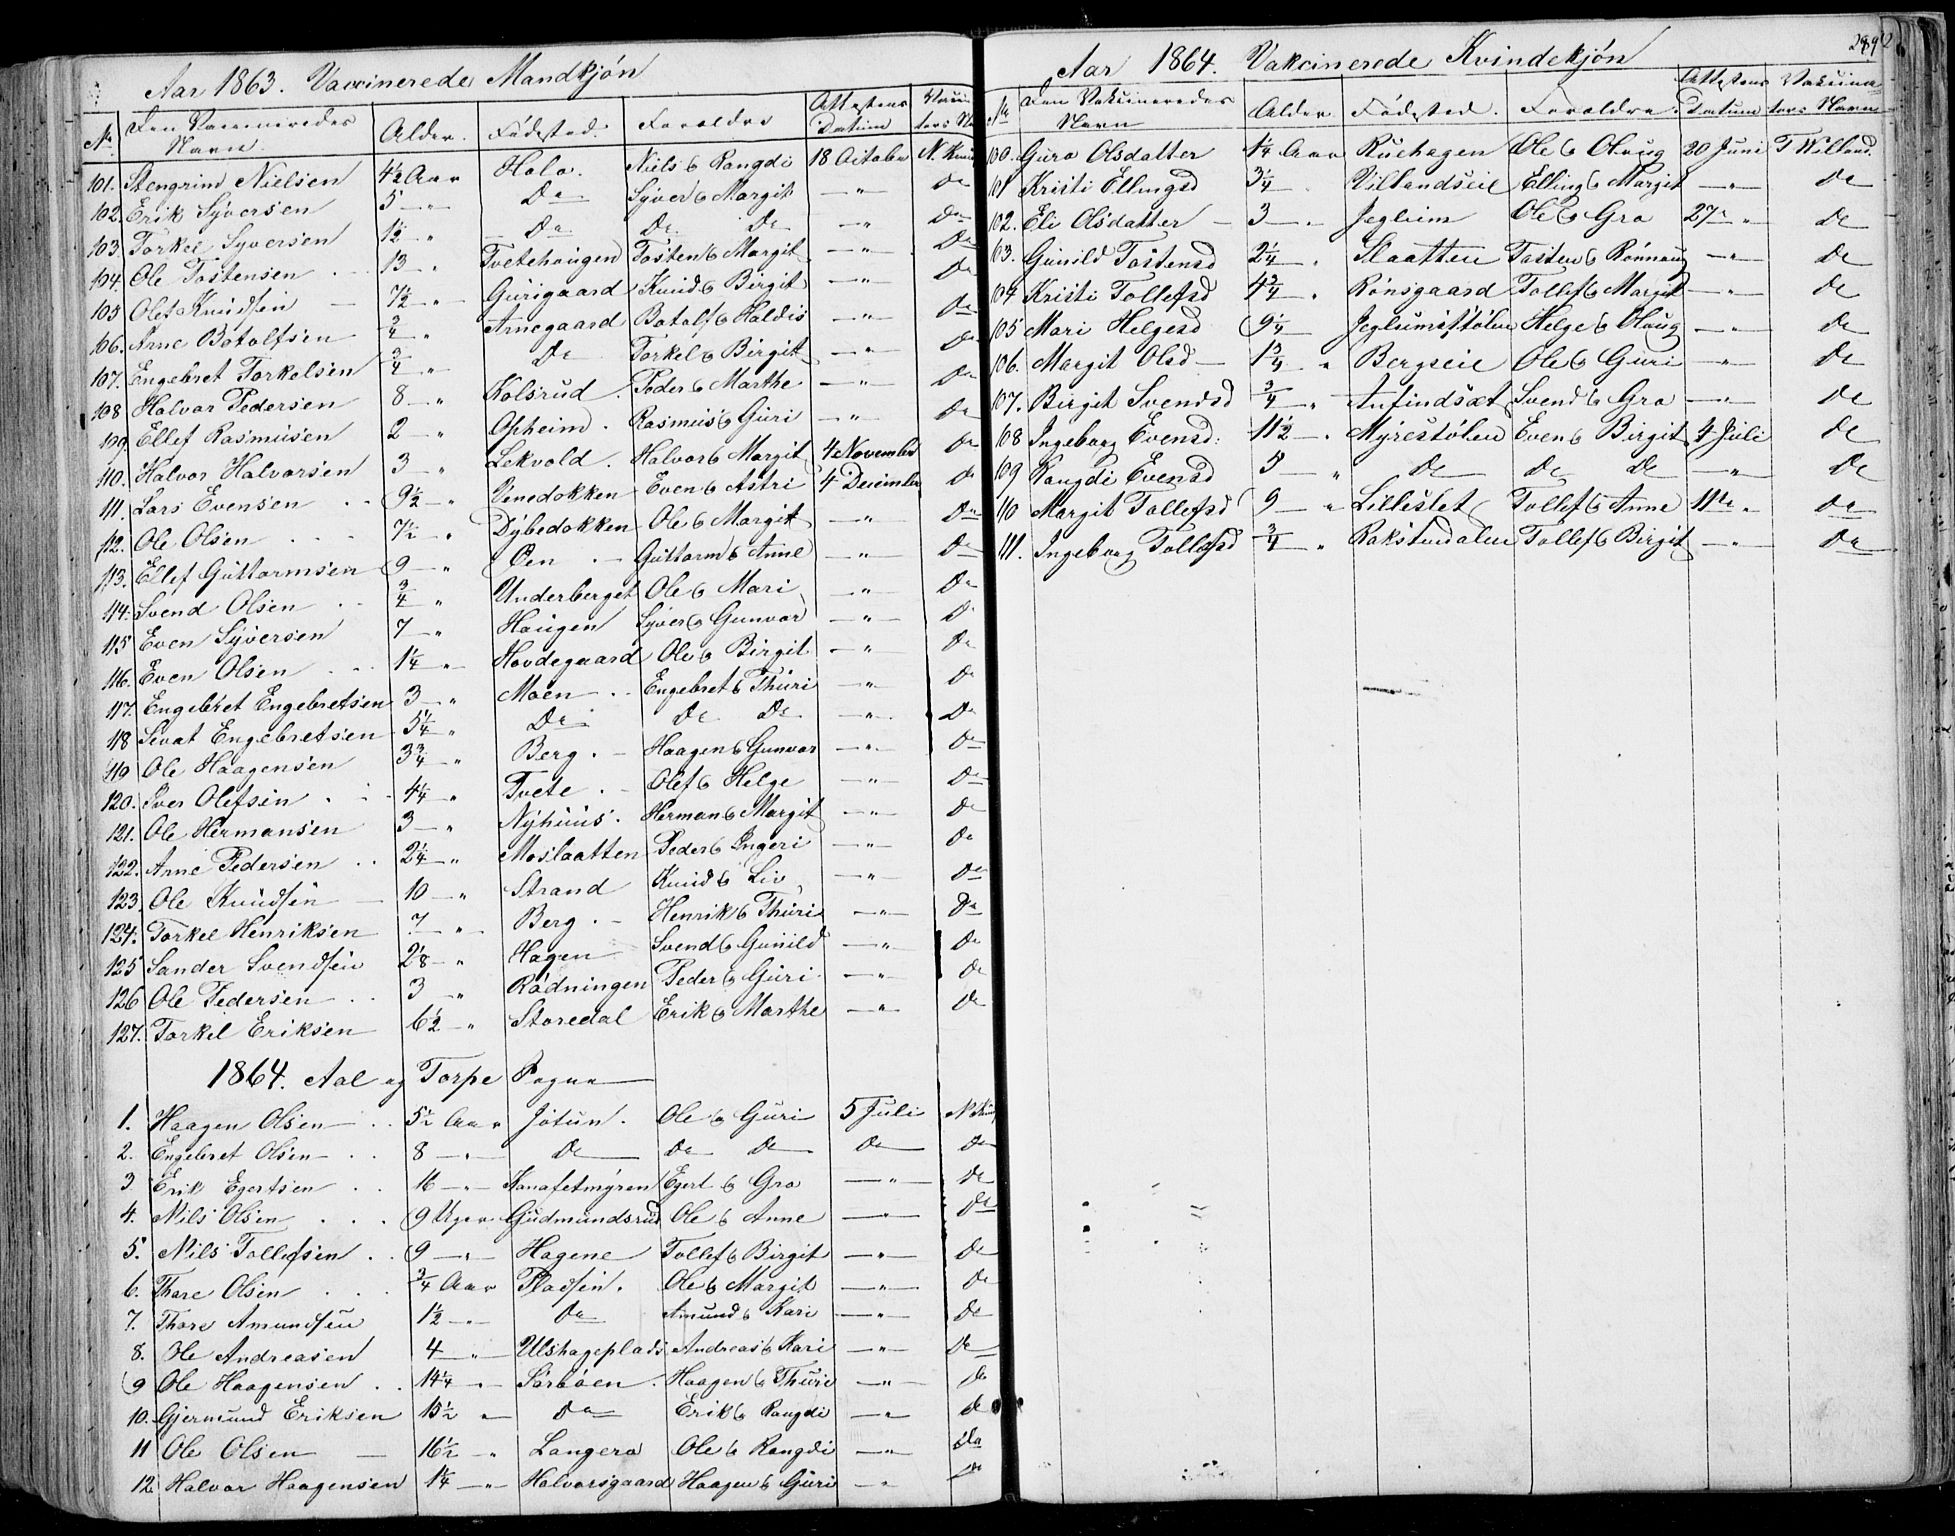 Aar 1863. Vaccinerede Mandkjön
No. Den Vaccineredes Navn. Alder. Födested. Foreldre Attestens Datum
101. Stengrim Nielsen 4½ Aar Holo. Niels & Rangdi 18 October N. Knud
102. Erik Syversen 5 — " Do Syver & Margit — " — Do
103. Torkel Syversen 1½ " Do Do Do — " — Do
104. Ole Tostensen 13 " Tvetehaugen Tosten & Margit — " — Do
105 Olef Knudsen 7½ — " Gurigaard Knud & Birgit — " — Do
106. Arne Botolfsen ¾ " Arnegaard Botolf & Haldis — " — Do
107. Engebret Torkelsen ¾ — " Do Torkel & Birgit — " — Do
108 Halvor Pedersen 8 — " Kolsrud. Peder & Marthe — " — Do
109. Ellef Rasmusen 2 — " Opheim. Rasmus & Guri — " — Do
110. Halvor Halvorsen 3 — " Lekvold. Halvor & Margit 4 November Do
111. Lars Evensen 9½ — " Vinedokken Even & Astri 4 December Do
112. Ole Olsen 7½ — " Dybedokken Ole & Margit — " — Do
113. Ellef Guttormsen 9 — " Öen Guttorm & Anne — " — Do
114. Svend Olsen ¾ " Underberget Ole & Mari — " — Do
115 Even Syversen 7 — " Haugen Syver & Gunvor — " — Do
116. Even Olsen 1¼ — " Hovdegaard Ole & Birgit — " — Do
117. Engebret Engebretsen 3 — " Moen Engebret & Thuri — " — Do
118 Sevat Engebretsen 5¼ — " Do Do Do — " — Do
119 Ole Haagensen 3¾ — " Berg. Haagen & Gunvor — " — Do
120. Iver Olefsen 4¼ — " Tvete Olef & Helge — " — Do
121. Ole Hermansen 3 — " Nyhuus. Herman & Margit — " — Do
122. Arne Pedersen 2¼ — " Moslaatten Peder & Ingeri — " — Do
123. Ole Knudsen 10 — " Strand Knud & Liv — " — Do
124. Torkel Henriksen 7 — " Berg. Henrik & Thuri — " — Do
125 Sander Svendsen 2⅛ — " Hagen Svend & Gunild — " — Do
126 Ole Pedersen 3 — " Rödningen Peder & Guri — " — Do
127. Torkel Eriksen 6½ — " Storedal Erik & Marthe — " — Do
1864. Aal og Torpe Sogne
1. Haagen Olsen 5½ Aar Jotun. Ole & Guri 5 Juli N Knud
2. Engebret Olsen 8 — " Do Do Do Do Do
3 Erik Egertsen 16 — " Egert & Gro — " — Do
4. Nils Olsen 9 Uger Gudmundsrud Ole & Anne — " — Do
5. Nils Tollefsen 9 — " Hagene Tollef & Birgit — " — Do
6. Thore Olsen ¾ Aar Pladsen. Ole & Margit — " — Do
7. Thore Amundsen 1½ — " Do Amund & Kari — " — Do
8. Ole Andreasen 4 — " Ulshageplads Andreas & Kari — " — Do
9 Ole Haagensen 14¼ — " Sörböen. Haagen & Thuri — " — Do
10. Gjermund Eriksen 15½ — " Do Erik & Rangdi — " — Do
11 Ole Olsen 16½ — " Langera Ole & Rangdi — " — Do
12. Halvor Haagensen 1¼ — " Halvorsgaard Haagen & Guri " Do
Aar 1864. Vakcinerede Kvindekjön
No Den Vakcineredes Navn Alder Födested. Foreldre. Attestens Datum Vakcinators Navn
100. Guro Olsdatter 1¼ Aar Ruehagen Ole & Olaug 20 Juni T Willand.
101 Kristi Ellingsd 3¼ Villandseie Elling & Margit — " — Do
102. Eli Olsdatter 3 — " Jegleim Ole & Gro 27de " Do
103. Gunild Tostensd 2¼ — " Slaatten Tosten & Rönnaug — " — Do
104 Kristi Tollefsd 4¾ — " Rönsgaard Tollef & Margit — " — Do
105 Mari Helgesd 9¼ — Jeglumstölen Helge & Olaug — " — Do
106. Margit Olsd 1¾ — " Bergseie Ole & Guri " Do
107. Birgit Svendsd ¾ — " Anfindsæt Svend & Gro — " — Do
108 Ingeborg Evensd: 11½ — " Myrestölen Even & Birgit 4 Juli Do
109 Rangdi Evensd 5 " Do Do Do — " — Do
110 Margit Tollefsd 9 — " Lilleslet Tollef & Anne 11te " Do
111. Ingeborg Tollefsd ¾ — " Rakstudalen Tollef & Birgit — " — Do